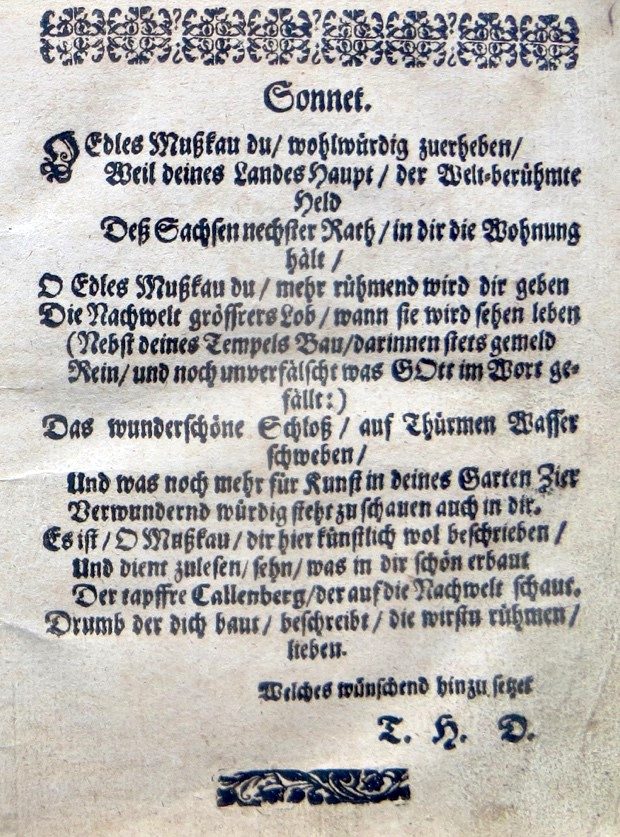 Sonnet.
O Edles Mußkau du/ wohlwürdig zuerheben/
Weil deines Landes Haupt / der Welt-berühmte
Held
Deß Sachsen nechster Rath / in dir die Wohnung
hält /
O Edles Mußkau du / mehr rühmend wird dir geben
Die Nachwelt grössrers Lob / wann sie wird sehen leben
(Nebst deines Tempels Bau/darinnen stets gemeld
Rein/ und noch unverfälscht was GOtt im Wort ge-
fällt:)
Das wunderschöne Schloß / auf Thürmen Wasser
schweben /
Und was noch mehr für Kunst in deines Garten Zier
Verwundernd würdig steht zu schauen auch in dir.
Es ist / O Mußkau / dir hier künstlich wol beschrieben /
Und dient zulesen/ sehn/ was in dir schön erbaut
Der tapffre Callenberg/der auf die Nachwelt schaut.
Drumb der dich baut/ beschreibt / die wirstu rühmen /
lieben.
Welches wünschend hinzu setzet
T. H. D.